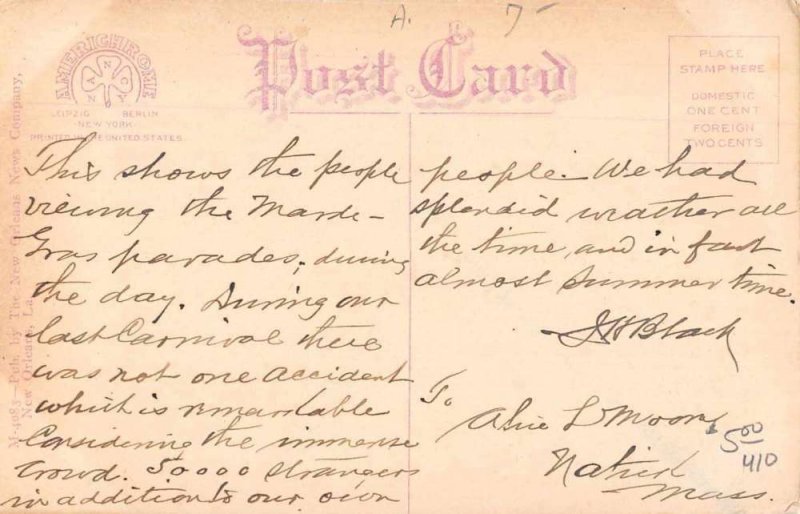 A. 7-
Post Card
AMERICHROME
N A N C Y
LEIPZIG BERLIN
NEW YORK
PRINTED IN THE UNITED STATES
PLACE
STAMP HERE
DOMESTIC
ONE CENT
FOREIGN
TWO CENTS
M-4983—Pub. by The New Orleans News Company,
New Orleans, La.
This shows the people
viewing the Marde-
Gras parades, during
the day. During our
last Carnival there
was not one accident
which is remarkable
Considering the immense
Crowd. 50000 strangers
in addition to our own
people. We had
splendid weather all
the time, and in fact
almost summer time.
JHBlack
To
Alice L Moore
Natick
Mass.
5.00
410